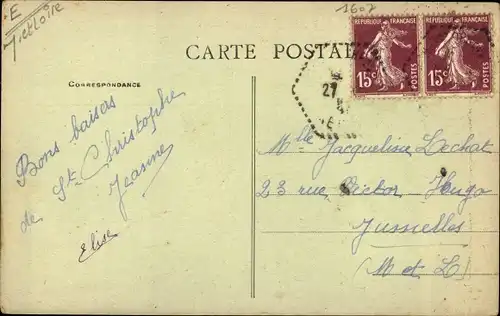 E
1607
CARTE POSTALE
REPUBLIQUE FRANÇAISE
15c POSTES
REPUBLIQUE FRANÇAISE
15c POSTES
27
CORRESPONDANCE
Bons baisers
de St Christophe
Jeanne
Elise
Mlle Jacqueline Lechat
23 rue Victor Hugo
(M et L)